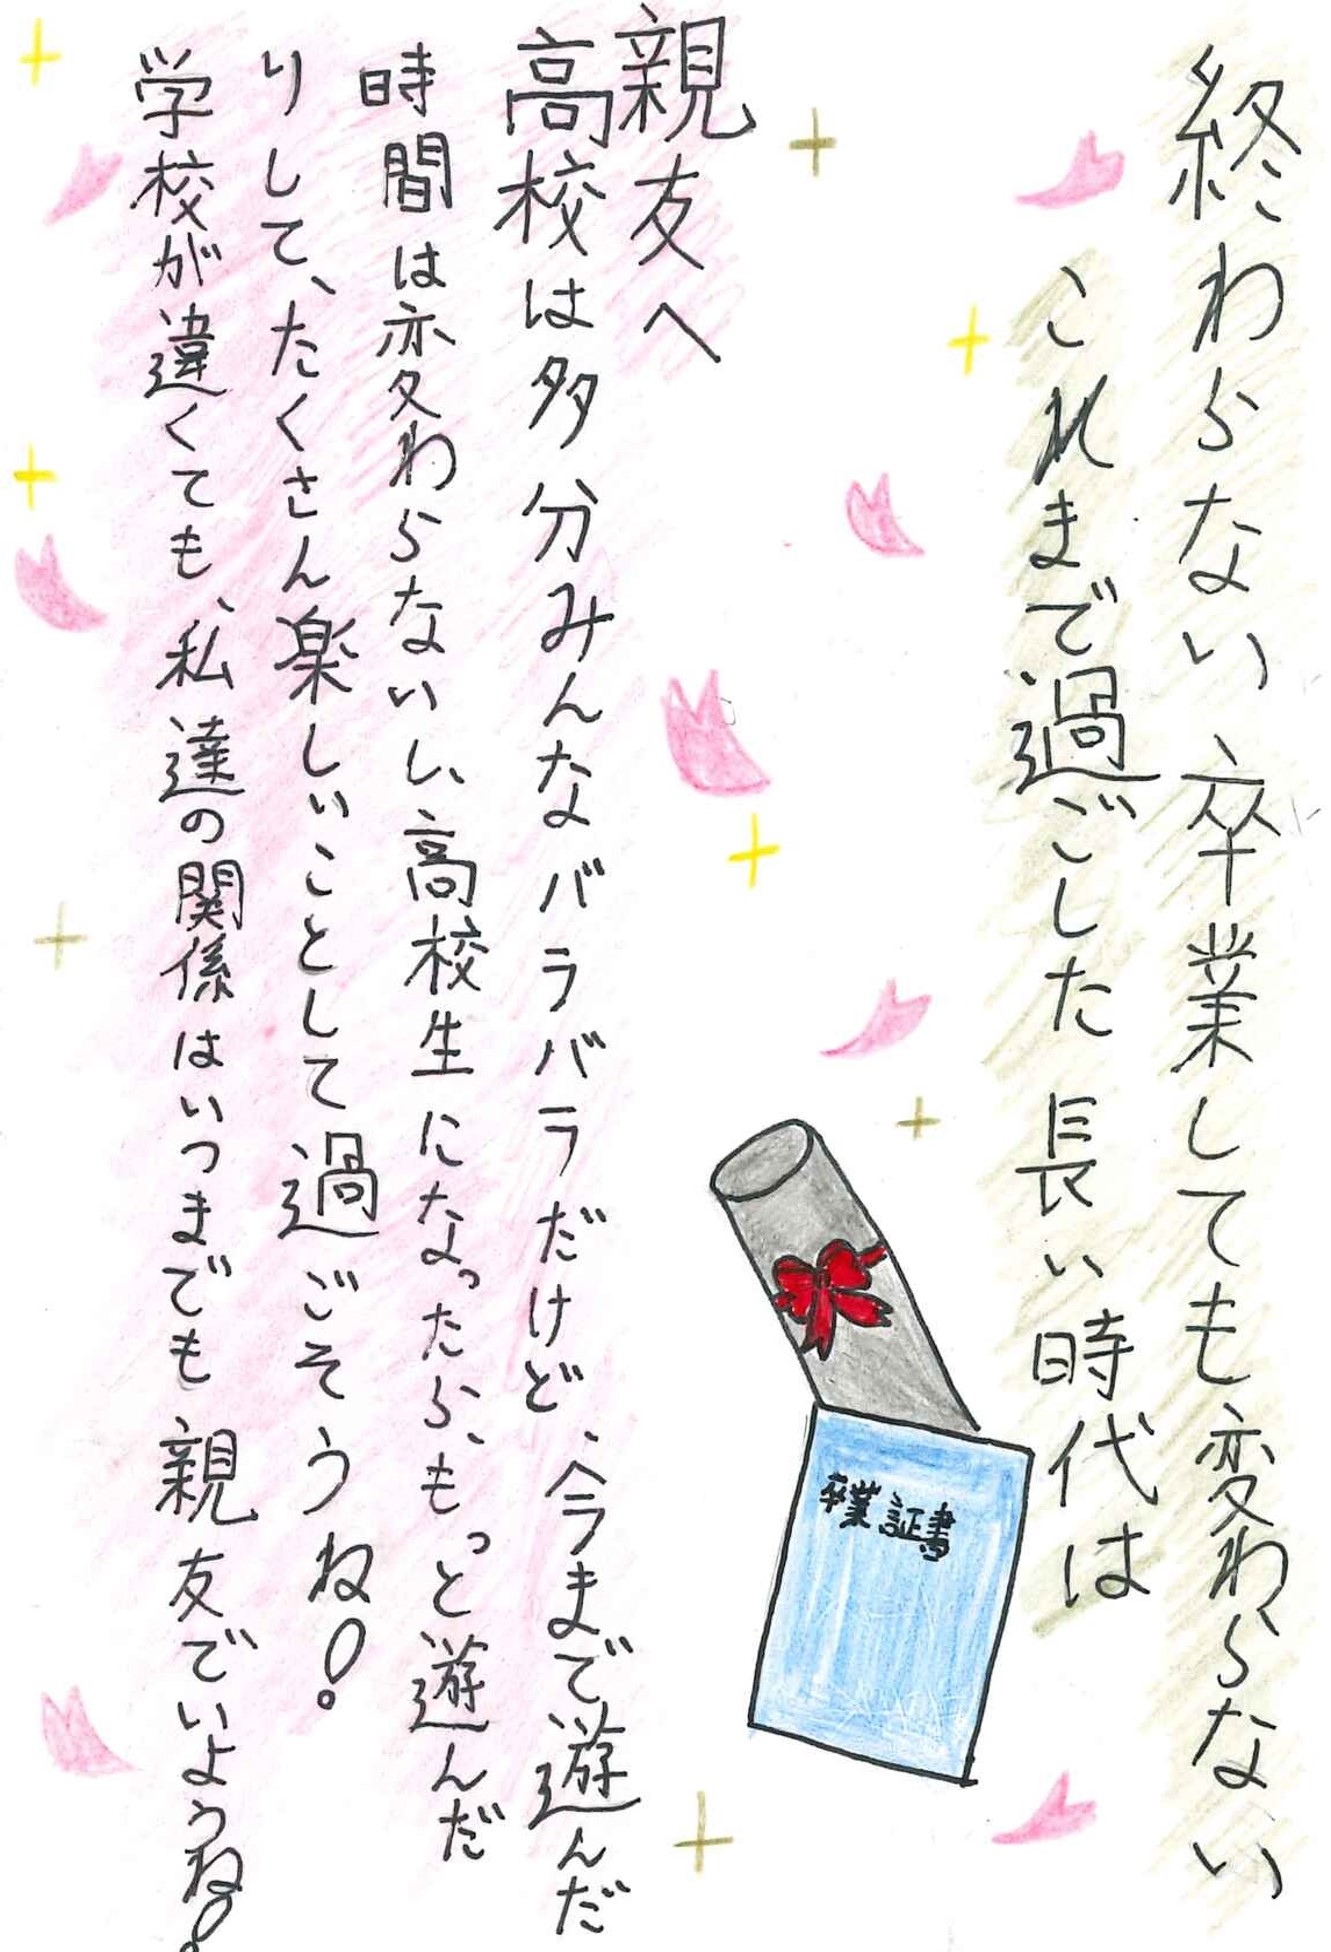 終わらない卒業しても変わらない
これまで過ごした長い時代は
卒業証書
親友へ
高校は多分みんなバラバラだけど、今まで遊んだ
時間は変わらないし、高校生になったら、もっと遊んだ
りして、たくさん楽しいことして過ごそうね!
学校が違くても、私達の関係はいつまでも親友でいようね!